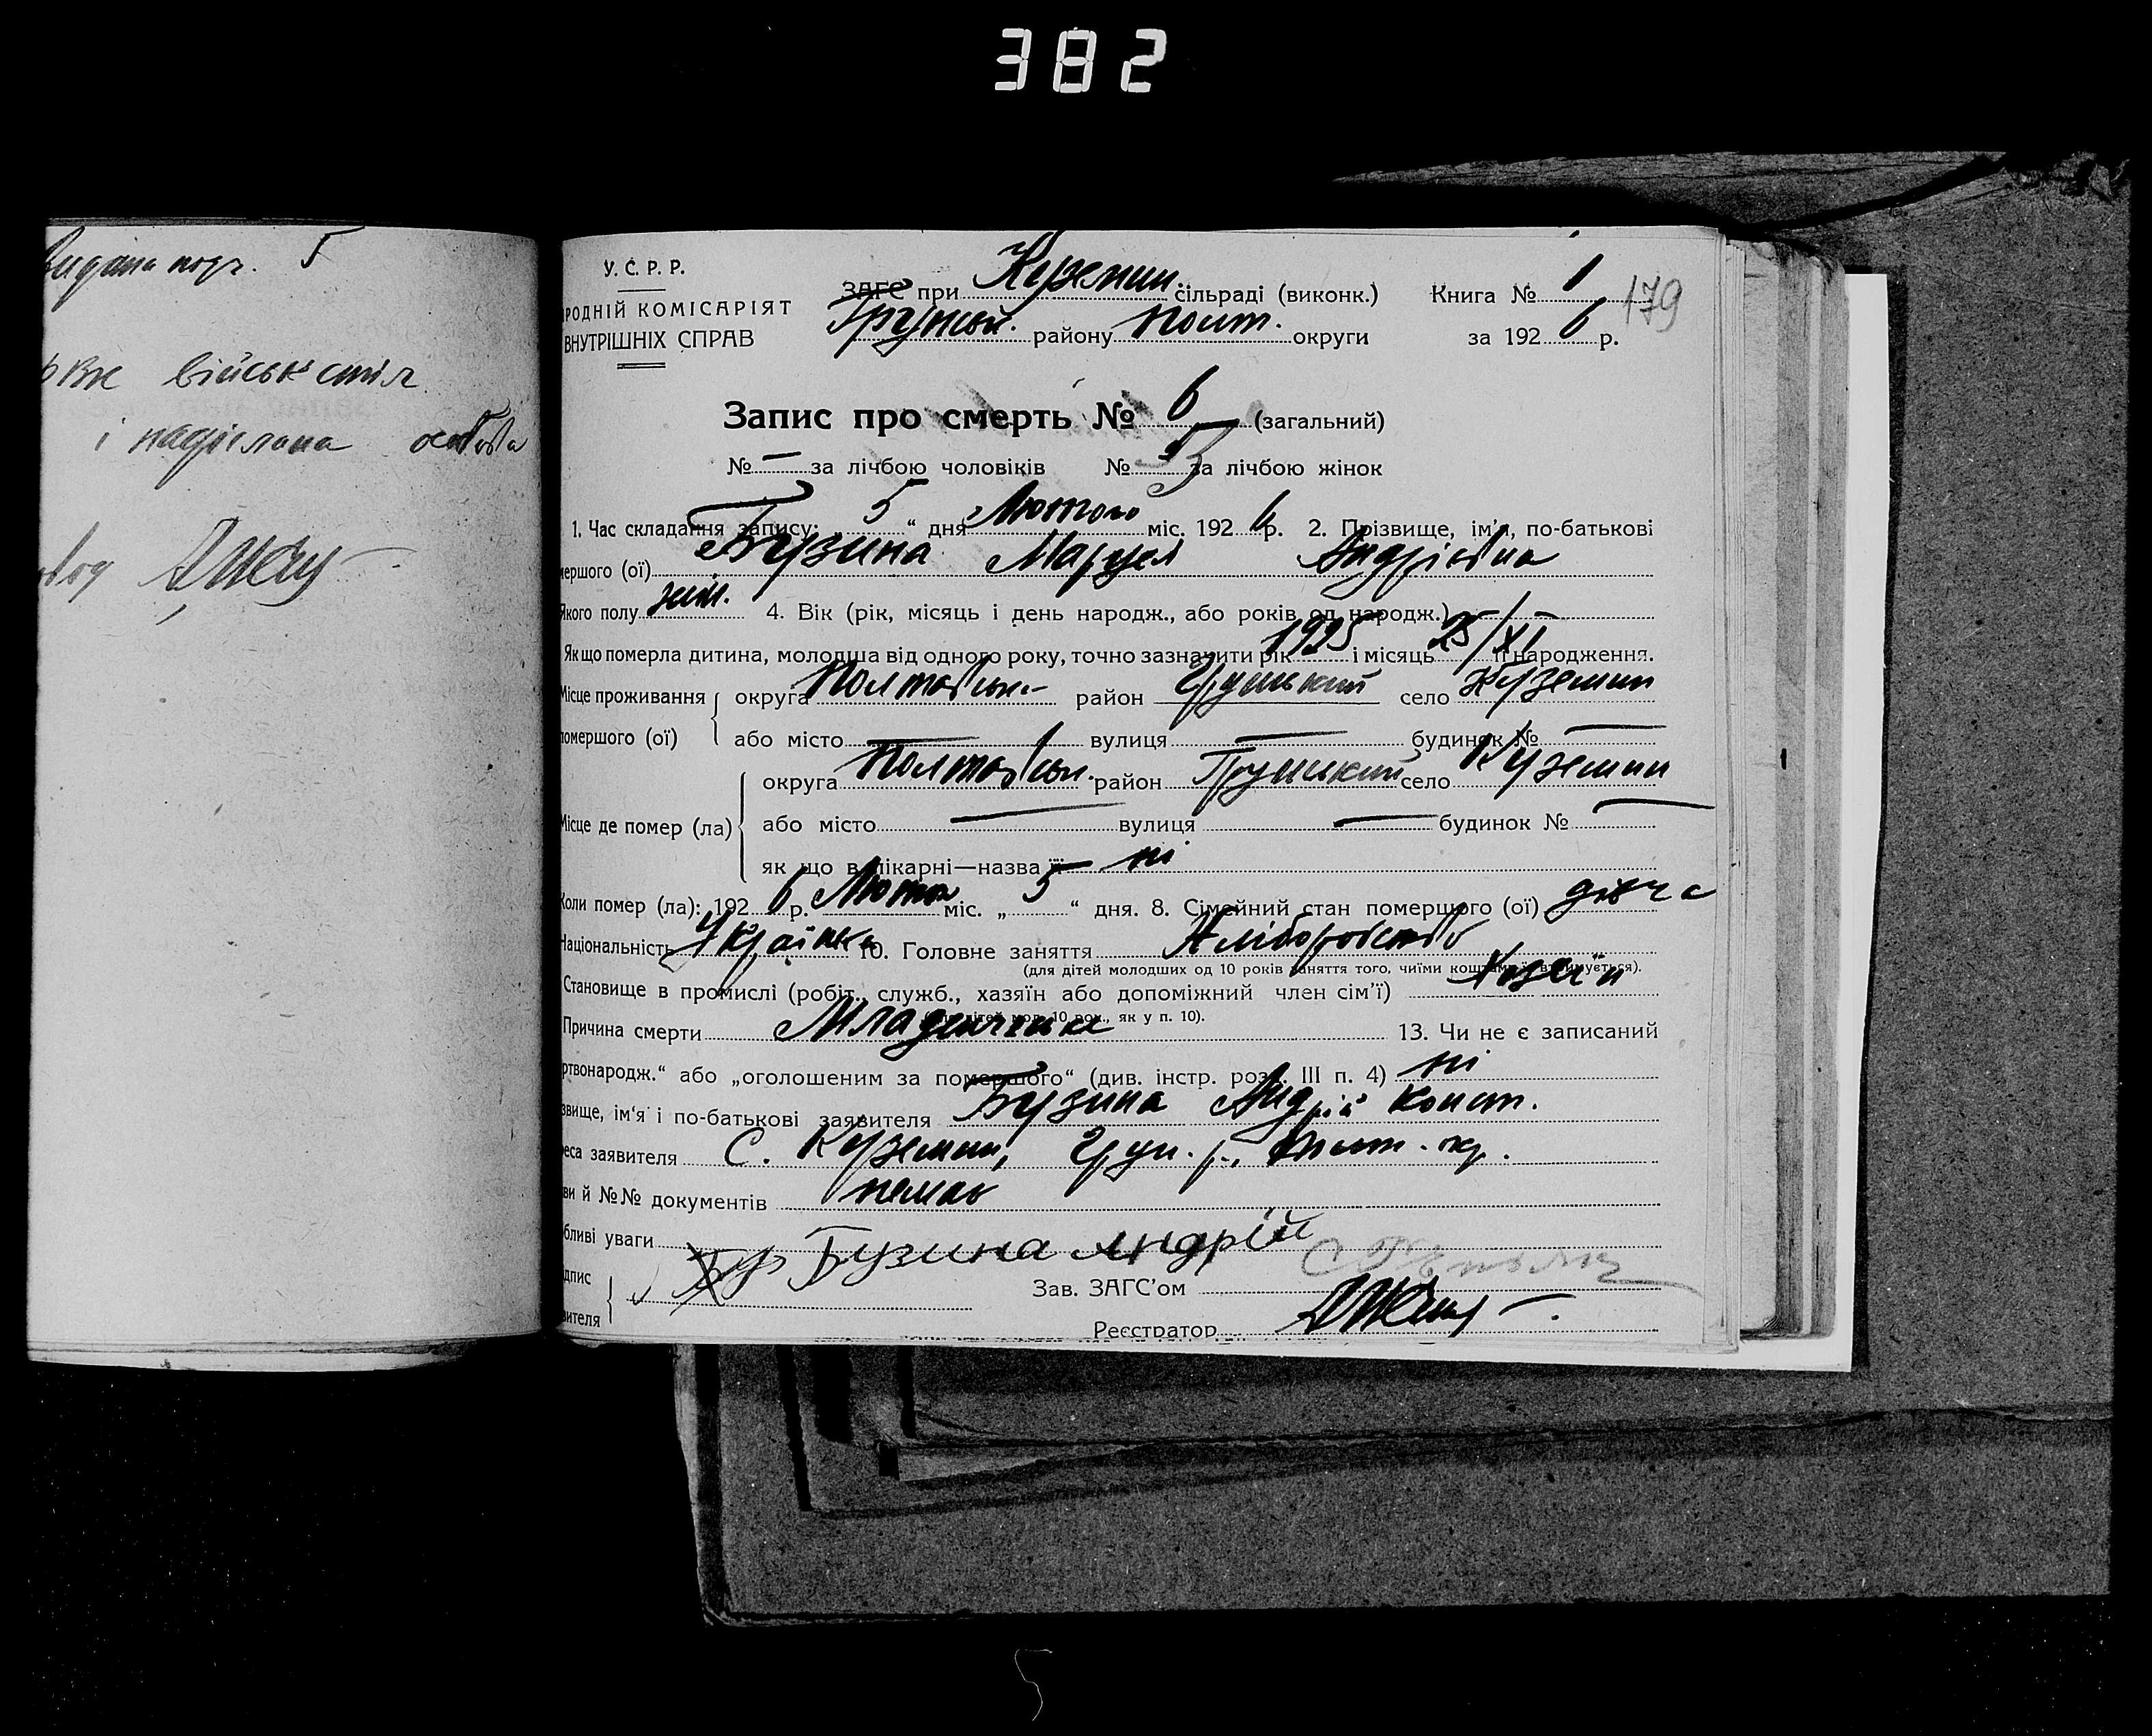 382
5
військ стіл
і надіслана
У. С. Р. Р.
РОДНІЙ КОМІСАРІЯТ
ВНУТРІШНІХ СПРАВ
ЗАГС при Куземин. сільраді (виконк.) Книга № 1
Грунськ. району Полт. округи за 192 6 р.
179
Запис про смерть № 6 (загальний)
№ — за лічбою чоловіків № 3 за лічбою жінок
1. Час складання запису: 5 “ дня Лютого міс. 192 6 р. 2. Прізвище, ім’я, по-батькові
мершого (ої) Бузина Маруся Андріївна
Якого полу жін. 4. Вік (рік, місяць і день народж., або років од народж.)
Якщо померла дитина, молодша від одного року, точно зазначити рік 1925 і місяць 25/XI її народження.
Місце проживання округа Полтавськ. район Грунський село Куземин
помершого (ої) або місто — вулиця — будинок № —
округа Полтавськ. район Грунський село Куземин
Місце де помер (ла) або місто — вулиця — будинок № —
як що в лікарні—назва її — ні
Коли помер (ла): 192 6 р. Лютня міс. „ 5 “ дня. 8. Сімейний стан помершого (ої) дівча
Національність Українка 10. Головне заняття Хліборобство
(для дітей молодших од 10 років заняття того, чиїми коштами їх втримується).
Становище в промислі (робіт., служб., хазяїн або допоміжний член сім’ї) Хазяїн
(для дітей мол. 10 рок., як у п. 10).
Причина смерти Младенческе 13. Чи не є записаний
ртвонародж.“ або „оголошеним за помершого“ (див. інстр. розд. III п. 4) ні
звище, ім‘я і по-батькові заявителя Бузина Андрій Конст.
реса заявителя С. Куземин, Грун. р., Полт. окр.
ви й №№ документів немає
бливі уваги
Бузина Андрій
дпис
вителя
Зав. ЗАГС’ом
Реєстратор